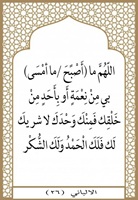 اللَّهُمَّ ما (أَصْبَحَ /ما أَمْسَى)
بي مِنْ نِعْمَةٍ أَو بِأَحَدٍ مِنْ
خَلْقِكَ فَمِنْكَ وَحْدَكَ لا شريكَ
لَكَ فَلَكَ الْحَمْدُ وَلَكَ الشُّكْر
الاذكار (٣٦)